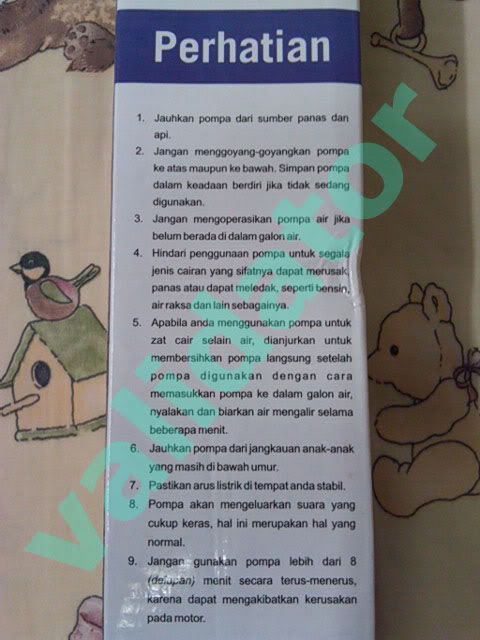 Perhatian
1. Jauhkan pompa dari sumber panas dan
api.
2. Jangan menggoyang-goyangkan pompa
ke atas maupun ke bawah. Simpan pompa
dalam keadaan berdiri jika tidak sedang
digunakan.
3. Jangan mengoperasikan pompa air jika
belum berada di dalam galon air.
4. Hindari penggunaan pompa untuk segala
jenis cairan yang sifatnya dapat merusak,
panas atau dapat meledak, seperti bensin,
air raksa dan lain sebagainya.
5. Apabila anda menggunakan pompa untuk
zat cair selain air, dianjurkan untuk
membersihkan pompa langsung setelah
pompa digunakan dengan cara
memasukkan pompa ke dalam galon air,
nyalakan dan biarkan air mengalir selama
beberapa menit.
6. Jauhkan pompa dari jangkauan anak-anak
yang masih di bawah umur.
7. Pastikan arus listrik di tempat anda stabil.
8. Pompa akan mengeluarkan suara yang
cukup keras, hal ini merupakan hal yang
normal.
9. Jangan gunakan pompa lebih dari 8
(delapan) menit secara terus-menerus,
karena dapat mengakibatkan kerusakan
pada motor.